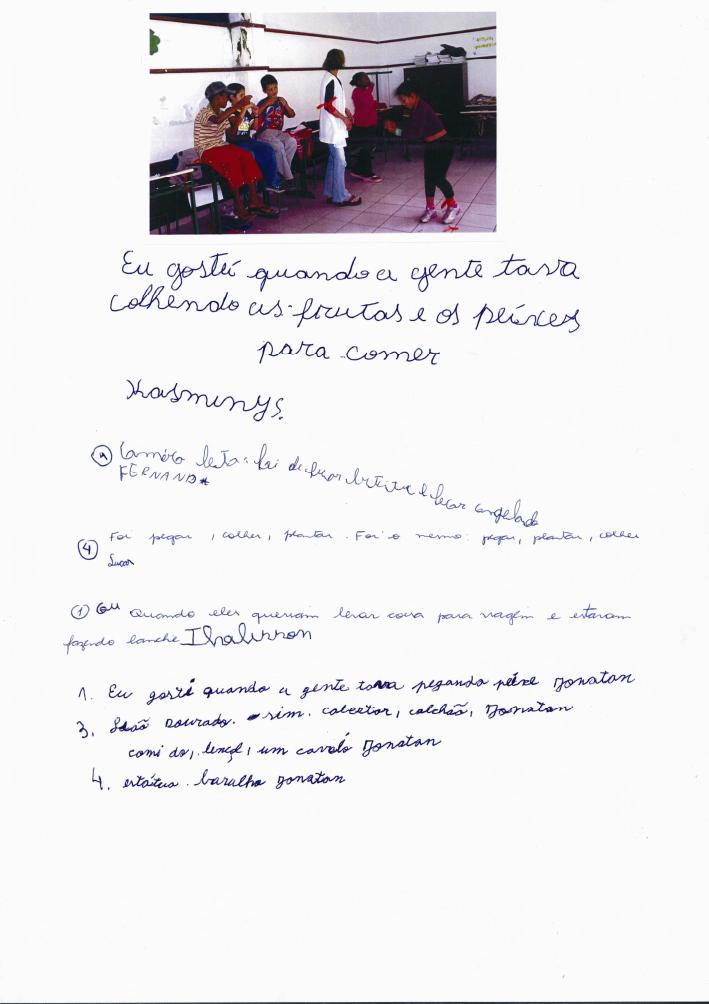 Eu gostei quando a gente tava
colhendo as frutas e os peixes
para comer
Kasminy S.
4 foi de ficar e ficar congelado
FERNAND
4 Foi pegar, colher, plantar. Foi o mesmo: pegar, plantar, colher
Lucas
1 Quando eles queriam levar coisa para viagem e estavam
fazendo lanche Thalisson
1. Eu gosti quando a gente tava pegando peixe Jonatan
3. João Dourado. sim. cobertor, colchão, Jonatan
comi do, lençol, um cavalo Jonatan
4. estátua. baralho Jonatan